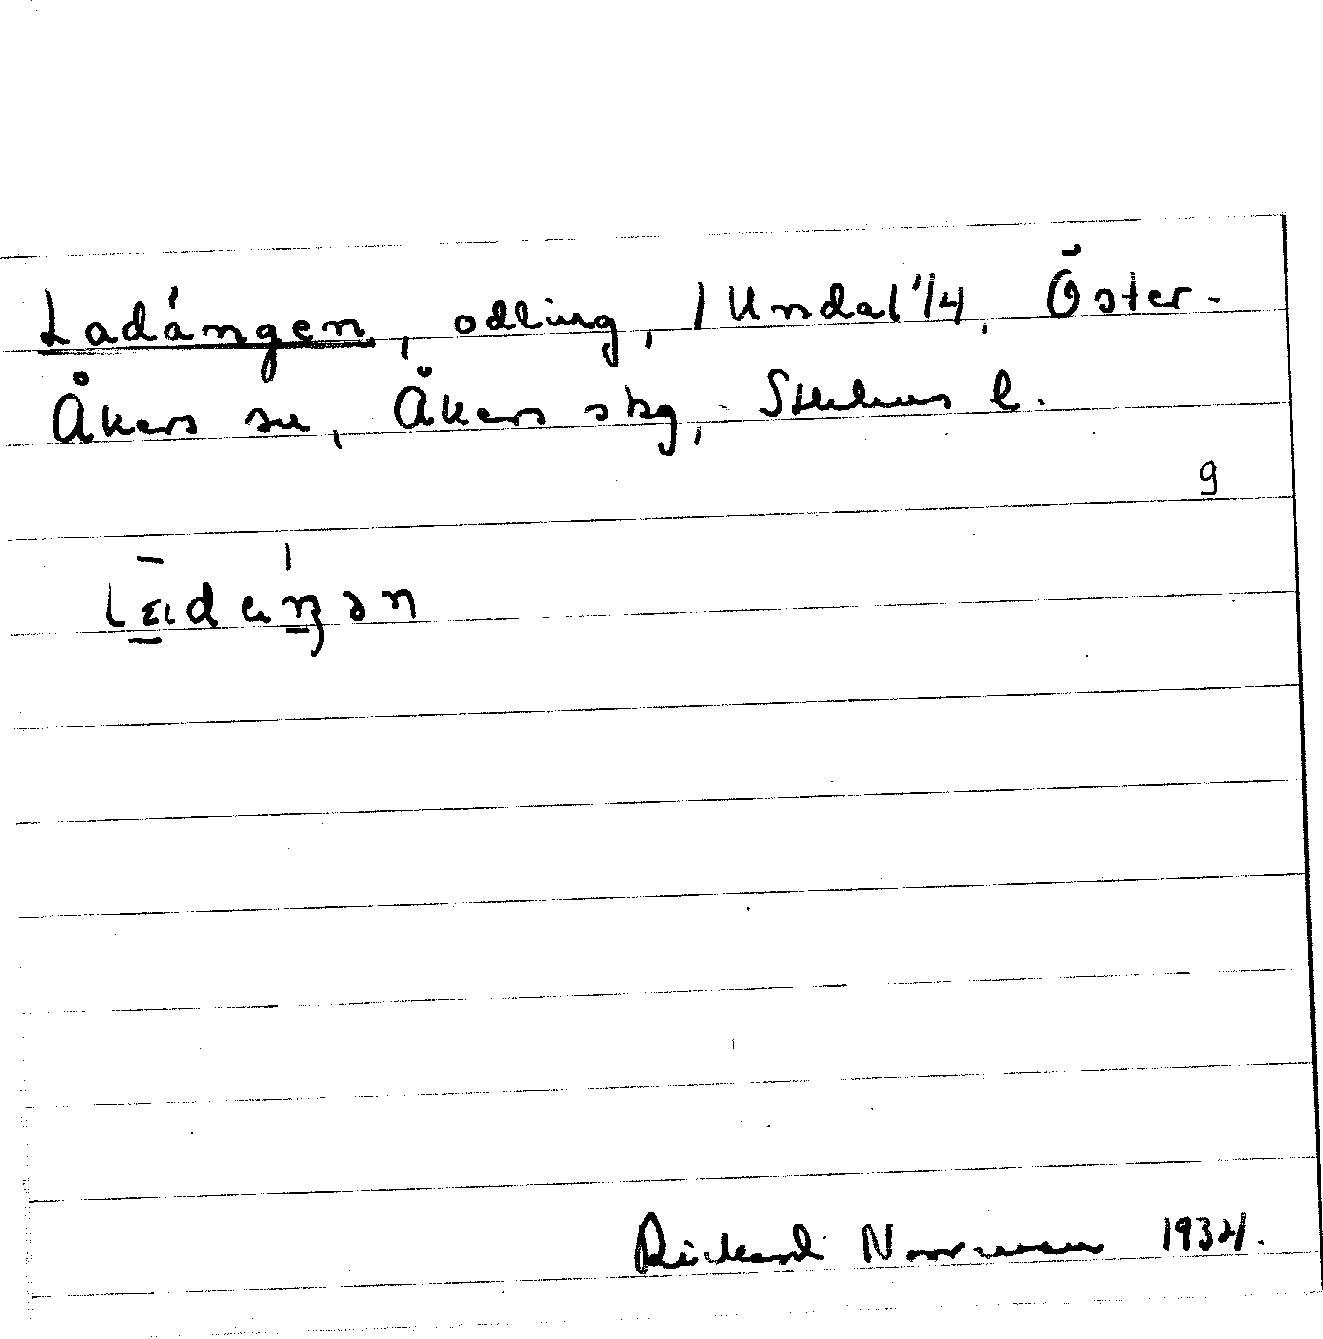 Ladängen, odling, / Undal 1/4, Öster-
Åkers sn, Åkers skg, Sthlms l.
9
Rickard Norrman 1934.